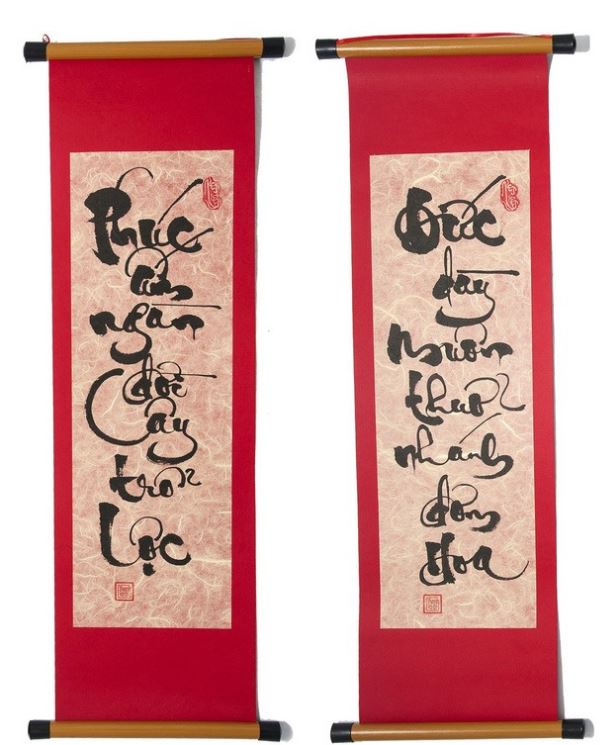 Phúc
ấm
ngàn
đời
Cây
trổ
Lộc
Đức
dày
Muôn
thuở
nhánh
đơm
Hoa